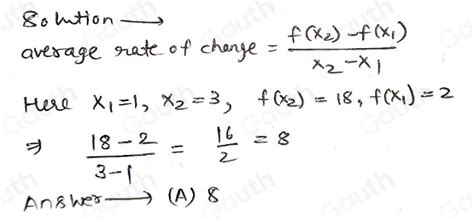 Solution ⟶
average rate of change = f(x₂) - f(x₁) / x₂ - x₁
Here x₁=1, x₂=3, f(x₂) = 18, f(x₁) = 2
⇒ 18 - 2 / 3 - 1 = 16 / 2 = 8
Answer ⟶ (A) 8